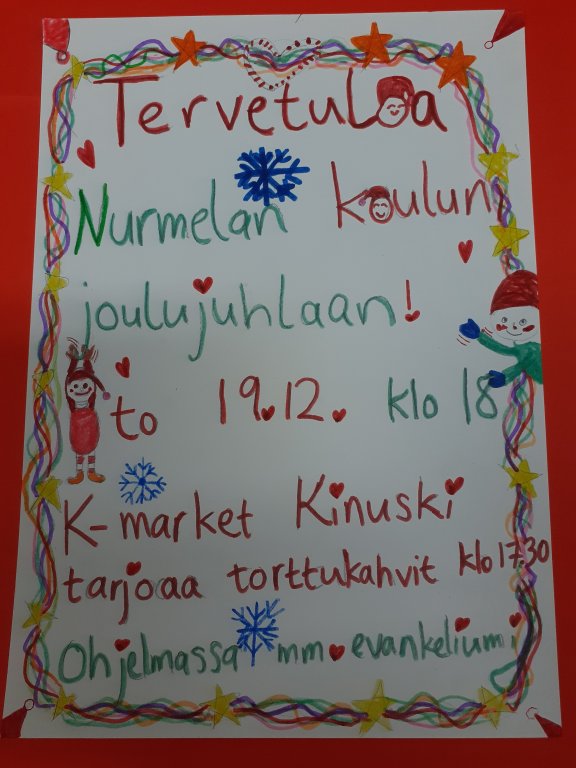 Tervetuloa
Nurmelan koulun
joulujuhlaan!
to 19.12. klo 18
K-market Kinuski
tarjoaa torttukahvit klo 17.30
Ohjelmassa mm. evankeliumi